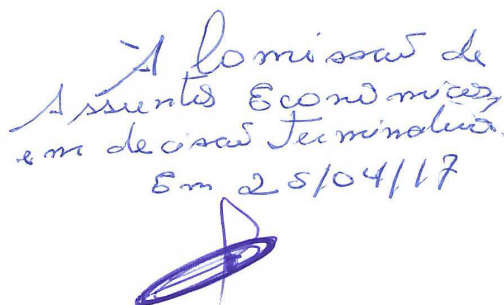 À Comissão de
Assuntos Econômicos,
em decisão terminativa.
Em 25/04/17